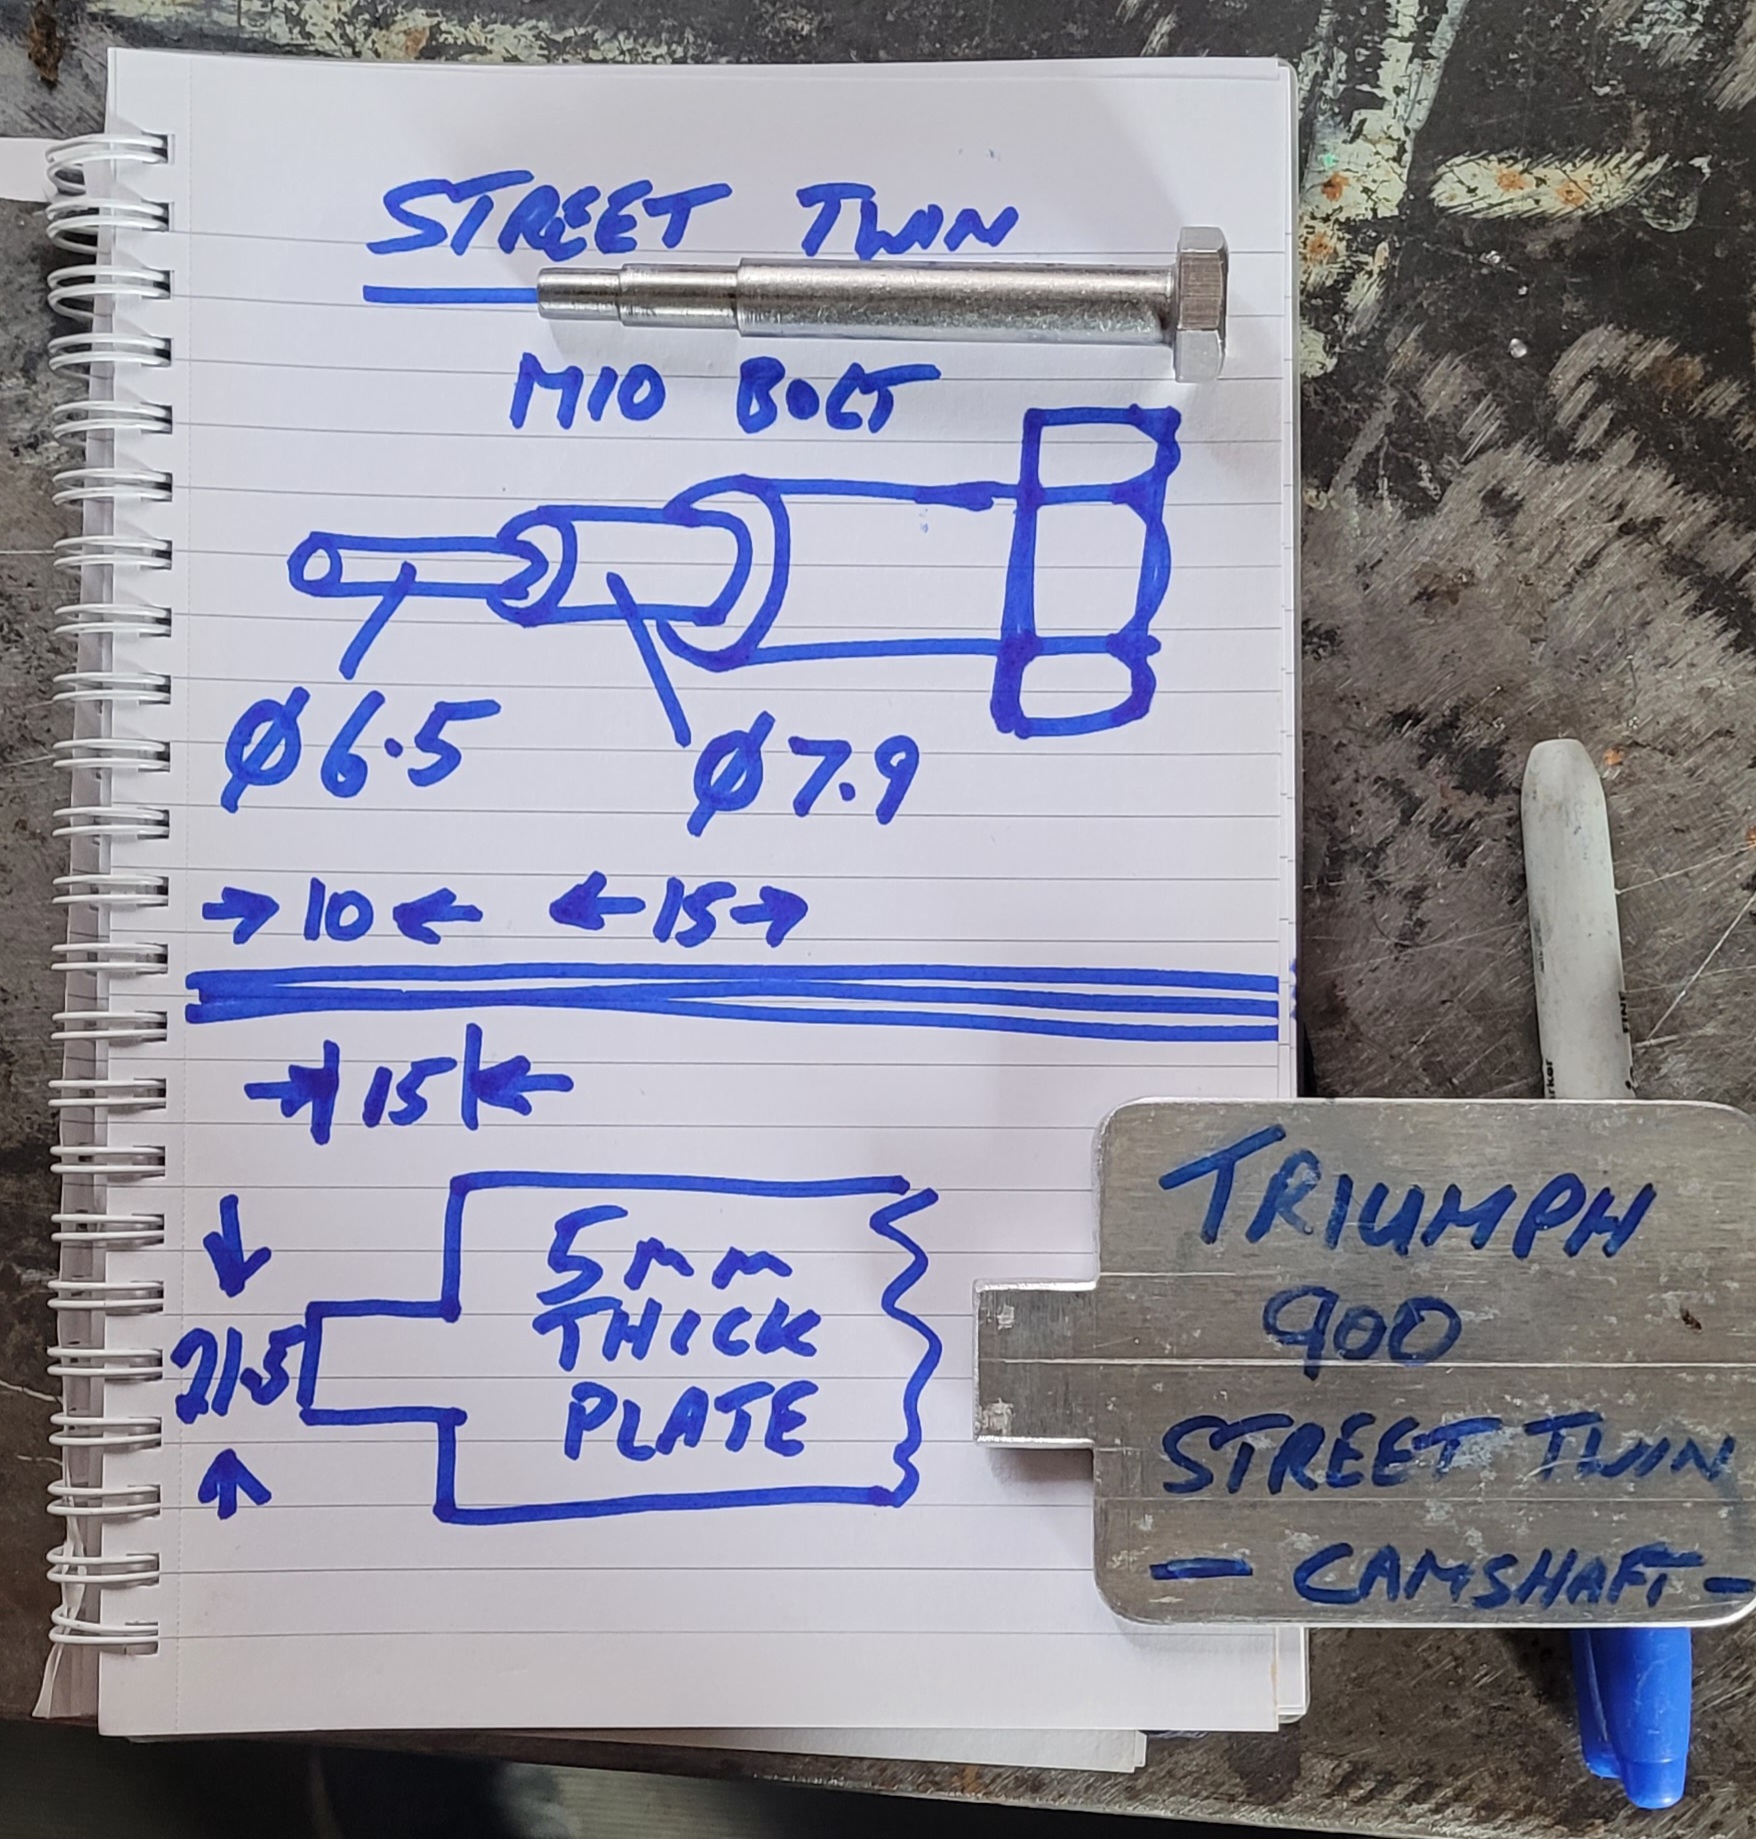 STREET TWIN
M10 BOLT
Ø6.5
Ø7.9
→10← ←15→
→|15|←
21.5
5mm
THICK
PLATE
TRIUMPH
900
STREET TWIN
- CAMSHAFT -